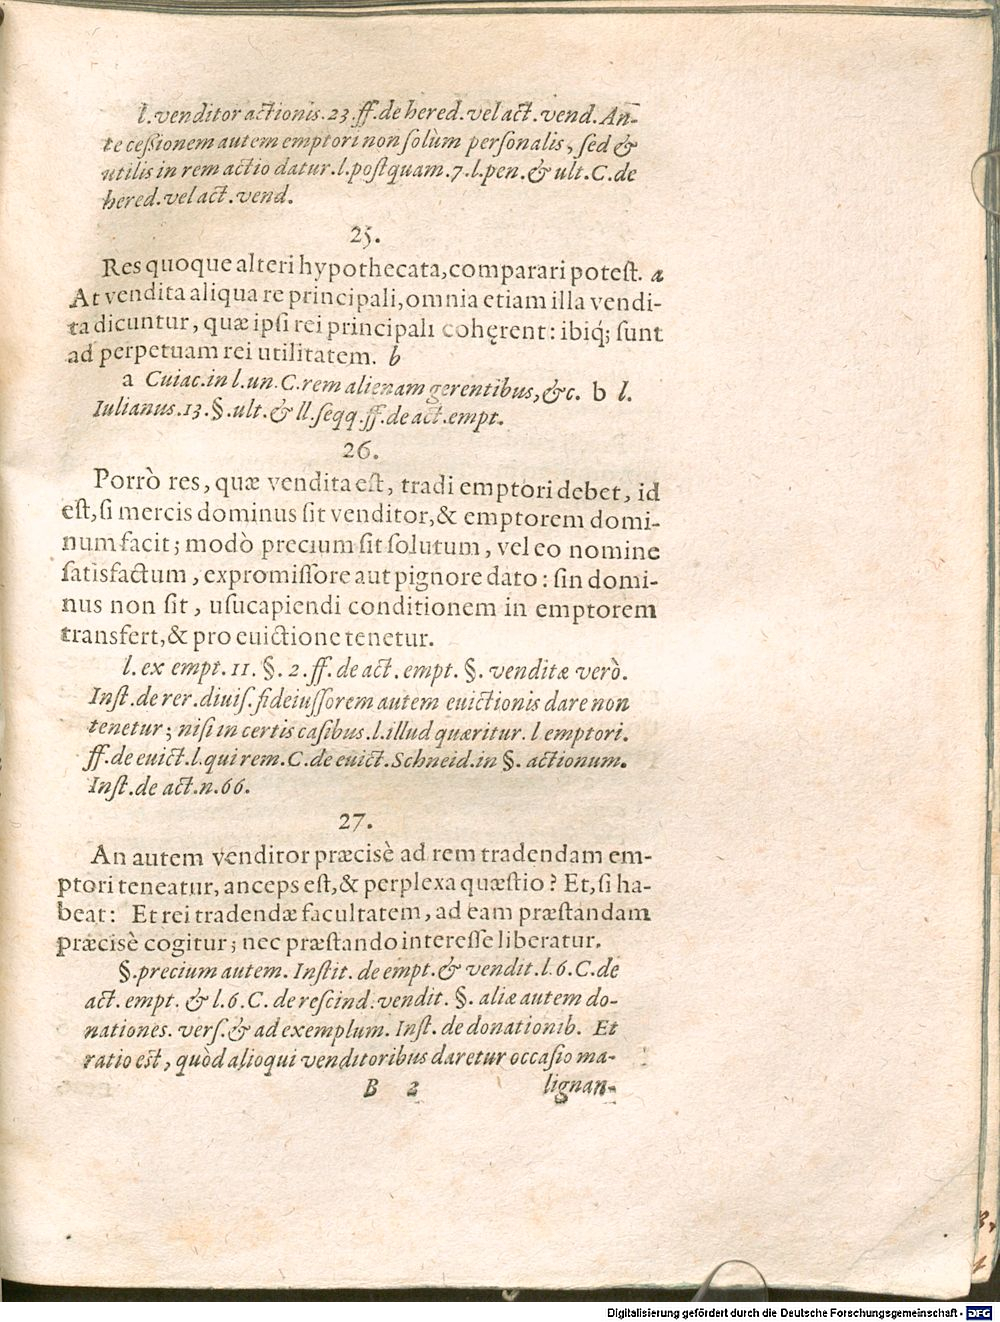 l. venditor actionis. 23. ff. de hered. vel act. vend. An-
te cessionem autem emptori non solùm personalis, sed &
utilis in rem actio datur. l. postquam. 7. l. pen. & ult. C. de
hered. vel act. vend.
25.
Res quoque alteri hypothecata, comparari potest. a
At vendita aliqua re principali, omnia etiam illa vendi-
ta dicuntur, quæ ipsi rei principali cohęrent: ibiq; sunt
ad perpetuam rei utilitatem. b
a Cuiac. in l. un. C. rem alienam gerentibus, &c. b l.
Iulianus. 13. §. ult. & ll. seqq. ff. de act. empt.
26.
Porrò res, quæ vendita est, tradi emptori debet, id
est, si mercis dominus sit venditor, & emptorem domi-
num facit; modò precium sit solutum, vel eo nomine
satisfactum, expromissore aut pignore dato: sin domi-
nus non sit, usucapiendi conditionem in emptorem
transfert, & pro euictione tenetur.
l. ex empt. 11. §. 2. ff. de act. empt. §. venditæ verò.
Inst. de rer. diuis. fideiussorem autem euictionis dare non
tenetur; nisi in certis casibus. l. illud quæritur. l emptori.
ff. de euict. l. qui rem. C. de euict. Schneid. in §. actionum.
Inst. de act. n. 66.
27.
An autem venditor præcisè ad rem tradendam em-
ptori teneatur, anceps est, & perplexa quæstio? Et, si ha-
beat: Et rei tradendæ facultatem, ad eam præstandam
præcisè cogitur; nec præstando interesse liberatur.
§. precium autem. Instit. de empt. & vendit. l. 6. C. de
act. empt. & l. 6. C. de rescind. vendit. §. aliæ autem do-
nationes. vers. & ad exemplum. Inst. de donationib. Et
ratio est, quòd alioqui venditoribus daretur occasio ma-
B 2 lignan-
Digitalisierung gefördert durch die Deutsche Forschungsgemeinschaft - DFG